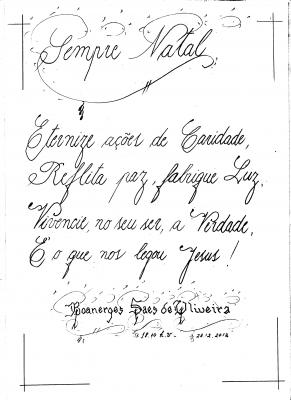 Sempre Natal
Eternize ações de Caridade,
Reflita paz, fabrique Luz,
Vivencie, no seu ser, a Verdade,
É o que nos legou Jesus!
Boanerges Saes de Oliveira
20.12.2012